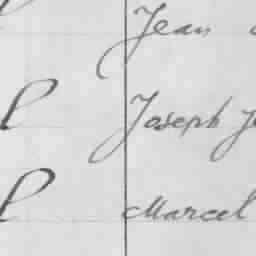 Jean
l Joseph
l Marcel